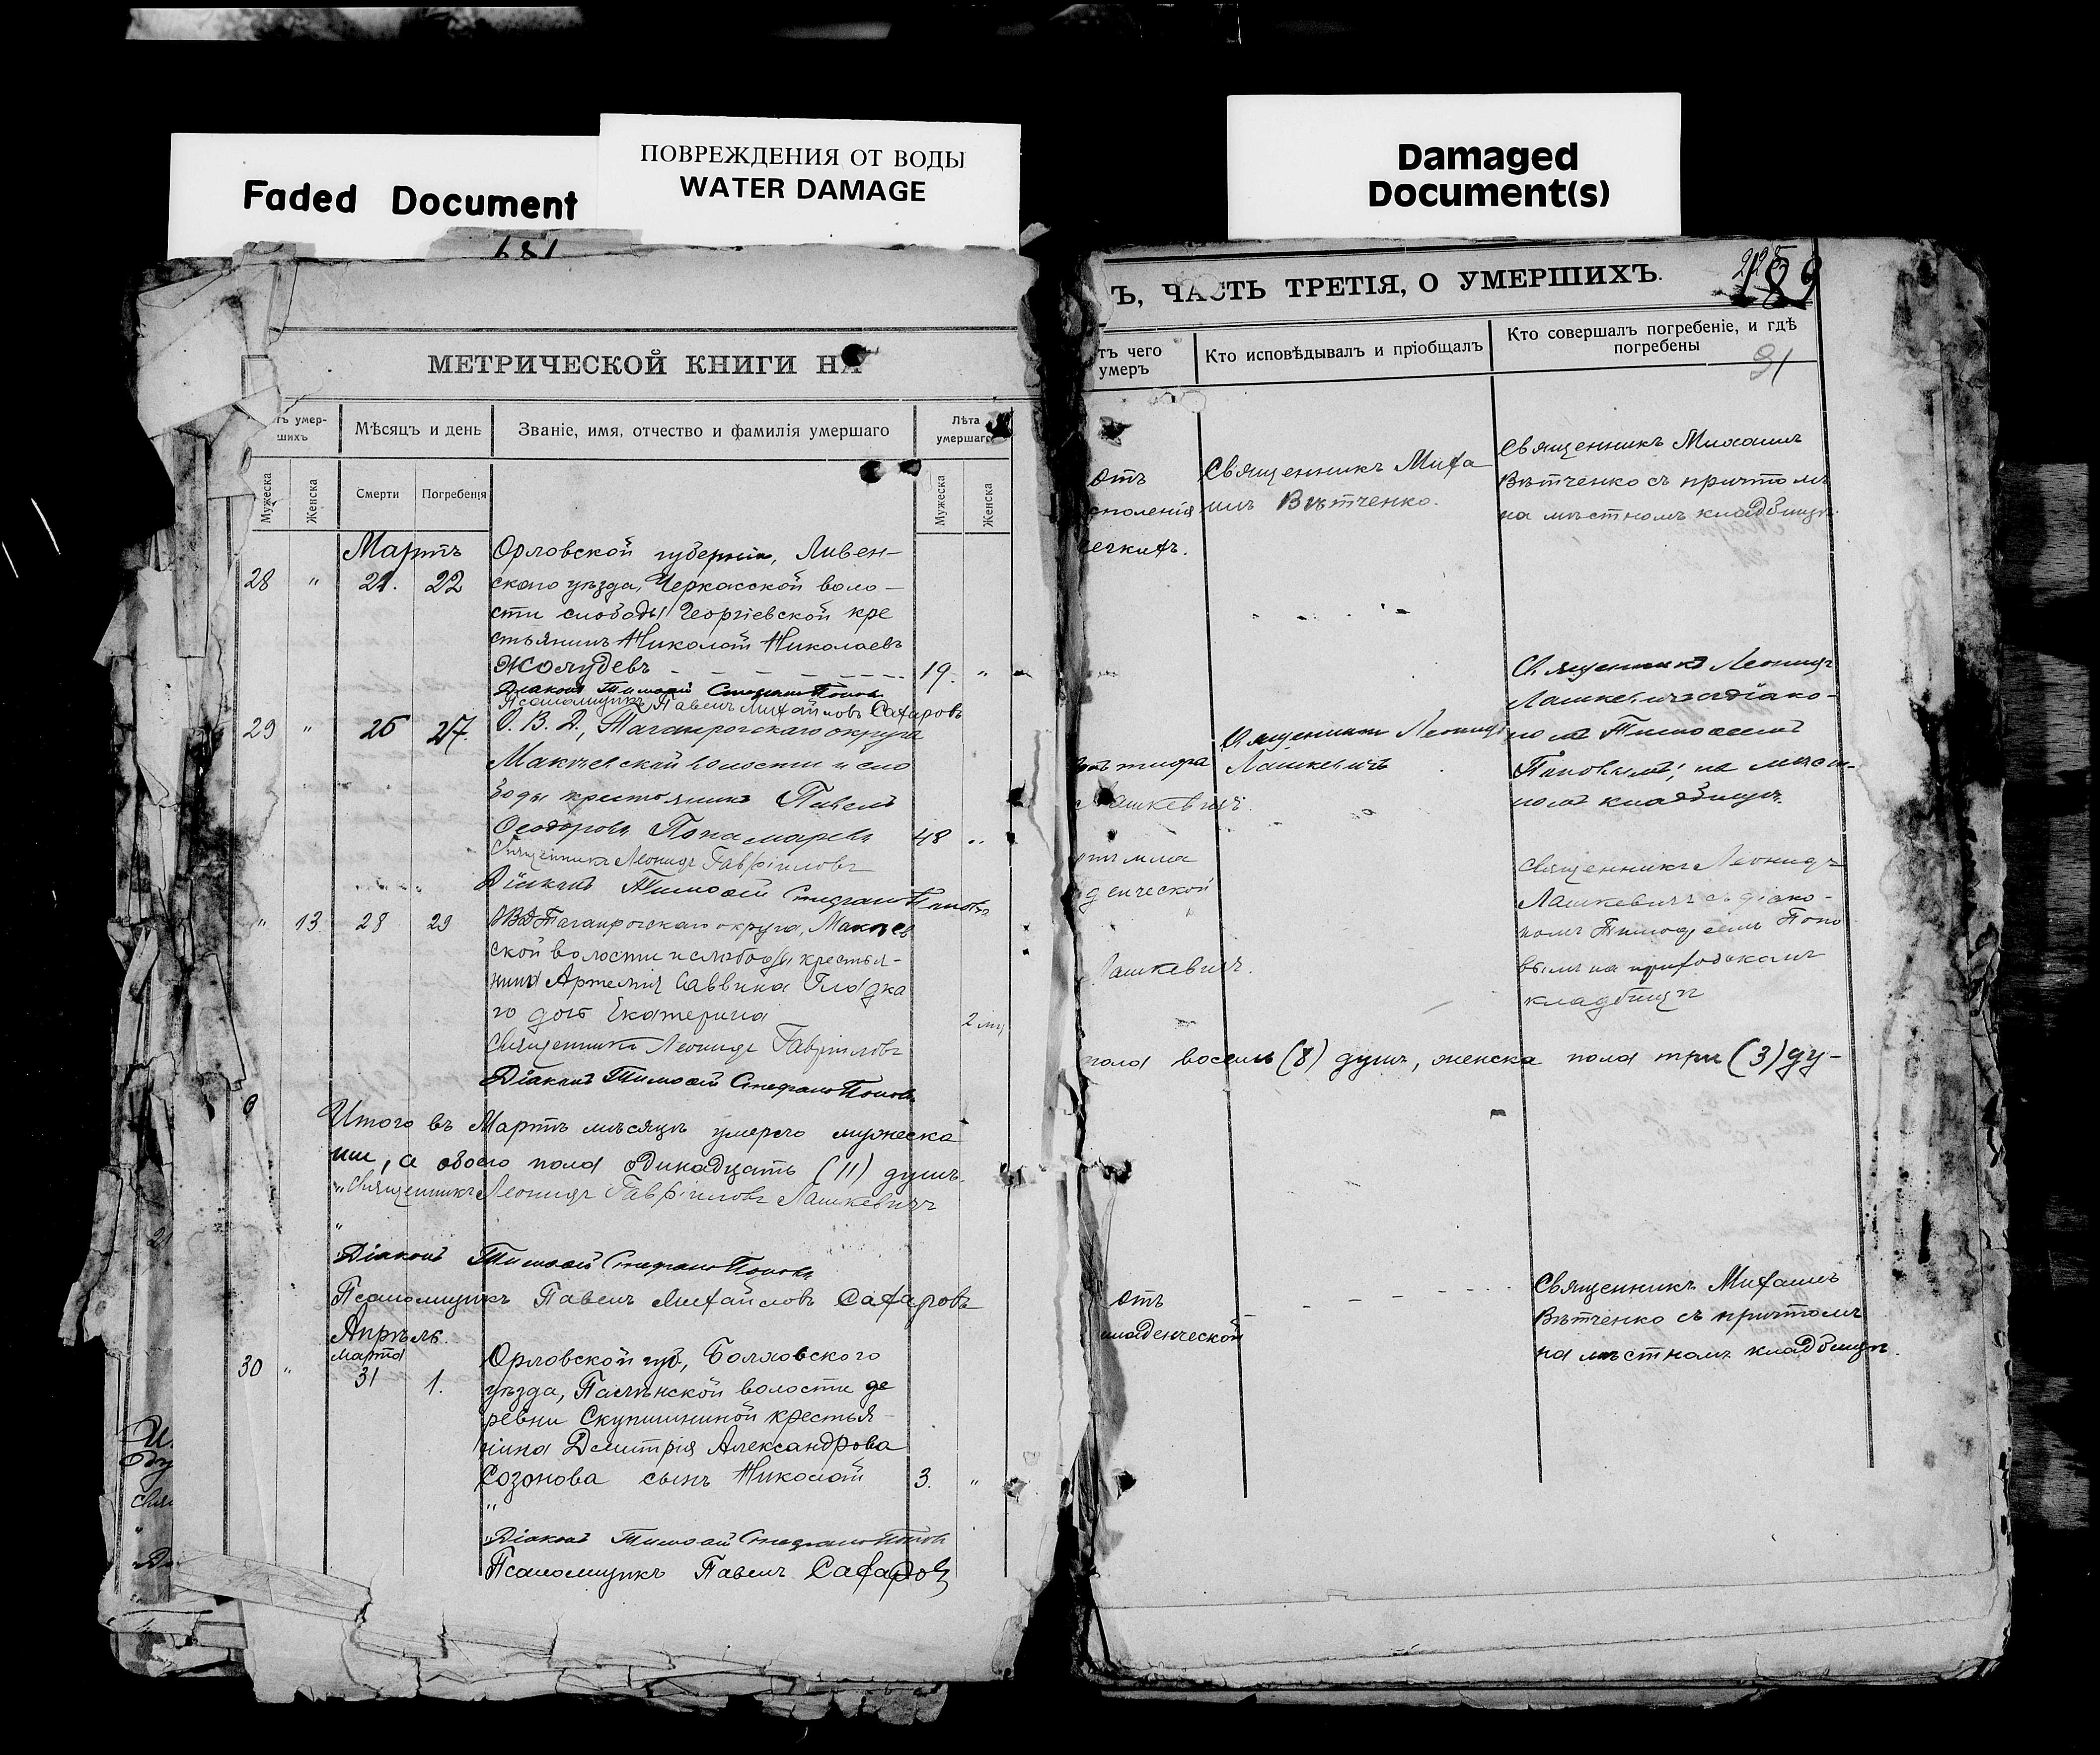 Faded Document
ПОВРЕЖДЕНИЯ ОТ ВОДЫ
WATER DAMAGE
Damaged
Document(s)
МЕТРИЧЕСКОЙ КНИГИ НА
умер-
шихъ
Мѣсяцъ и день
Званіе, имя, отчество и фамилія умершаго
Лѣта
умершаго
Мужеска
Женска
Смерти
Погребенія
Мужеска
Женска
Мартъ
28 " 21. 22
Орловской губерніи, Ливен-
скаго уѣзда, Черкасской воло-
сти слободы Георгіевской кре
стьянинъ Николай Николаевъ
Жолудевъ 19. "
Діаконъ Тимоѳей Стефановъ Поповъ
Псаломщикъ Павелъ Михайловъ Сахаровъ
29 " 26 27.
О. В. Д., Таганрогскаго округа
Макѣевской волости и сло
боды крестьянинъ Павелъ
Ѳеодоровъ Понамаревъ 48 "
Священникъ Леонидъ Гавріиловъ
Діаконъ Тимоѳей Стефановъ Поповъ
" 13 28 29
ОВД Таганрогскаго округа, Макѣев
ской волости и слободы крестья-
нина Артемія Саввина Гладка
го дочь Екатерина 2 мц
Священникъ Леонидъ Гавріиловъ
Діаконъ Тимоѳей Стефановъ Поповъ
Итого въ Мартѣ мѣсяцѣ умерло мужеска
ши, а обоего пола одинадцать (11) душъ.
Священникъ Леонидъ Гавріиловъ Лашкевичъ
Діаконъ Тимоѳей Стефановъ Поповъ
Псаломщикъ Павелъ Михайловъ Сахаровъ
Апрѣль.
Марта
30 " 31 1.
Орловской губ., Болховского
уѣзда, волости де
ревни крестья-
нина Дмитрія Александрова
Созонова сынъ Николай 3. "
Діаконъ Тимоѳей Стефановъ Поповъ
Псаломщикъ Павелъ Сахаровъ
Ъ, ЧАСТЬ ТРЕТІЯ, О УМЕРШИХЪ.
189
тъ чего
умеръ
Кто исповѣдывалъ и пріобщалъ
Кто совершалъ погребеніе, и гдѣ
погребены
91
Отъ
легкихъ.
Священникъ Миха
илъ Вѣтченко.
Священникъ Михаилъ
Вѣтченко съ причтомъ
на мѣстномъ кладбищѣ.
отъ тифа
Лашкевичъ.
Священникъ Леонидъ
Лашкевичъ
Священникъ Леонидъ
Лашкевичъ съ діако-
номъ Тимоѳеемъ
Поповымъ, на мѣст-
номъ кладбищѣ.
отъ мла
денческой
Лашкевичъ.
Священникъ Леонидъ
Лашкевичъ съ діако-
номъ Тимоѳеемъ Попо
вымъ на приходскомъ
кладбищѣ
пола восемь (8) душъ, женска пола три (3) ду-
Отъ
младенческой
Священникъ Михаилъ
Вѣтченко съ причтомъ
на мѣстномъ кладбищѣ.